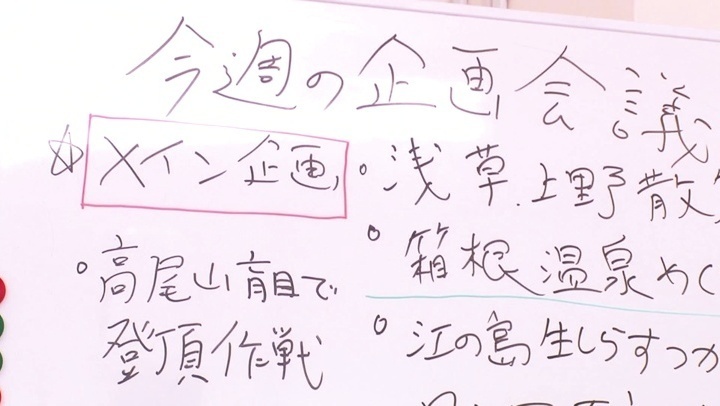 今週の企画会議
☆ メイン企画
。高尾山育目で
登頂作戦
。浅草、上野散
。箱根温泉めぐ
。江の島生しらすつか